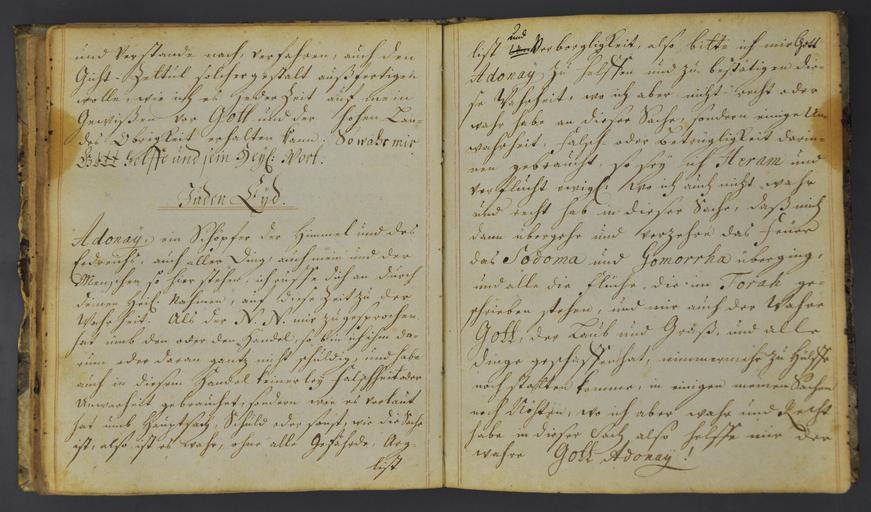 und Verstande nach, verfahren, auch den
Gicht-Zettul solchergestalt außfertigen
wolle, wie ich es jederzeit auf mein
Gewißen vor Gott und der hohen Lan-
des Obrigkeit erhalten kann. So wahr mir
Gott helffe und sein Heyl: Wort.
Juden Eyd.
Adonay, ein Schöpfer der Himmel und des
Erdreichs, auch aller Ding, auch mein und der
Menschen so hier stehen, ich ruffe dich an durch
deinen Heil: Nahmen, auf diese Zeit zu der
Wahrheit. Als der N. N. mir zugesprochen
hat umb den oder den Handel, so bin ich ihm da-
rum oder daran gantz nicht schuldig, und habe
auch in diesem Handel keinerley Falschheit oder
Unwarheit gebrauchet, sondern wie es verlaut
hat umb Hauptsach, Schuld oder sonst, wie die Sach
ist, also ist es wahr, ohne alle Gefährde, Arg-
list
list und Verborgligkeit, also bitte ich mir Gott
Adonay zu helffen und zu bestätigen die-
se Wahrheit, wo ich aber nicht recht oder
wahr habe an dieser Sache, sondern einige Un-
wahrheit, Falsch- oder Betrügligkeit darin-
nen gebraucht, so sey ich Heram und
verflucht ewigl: wo ich auch nicht wahr
und recht hab in dieser Sache, daß mich
dann übergehe und verzehre das Feuer
das Sodoma und Gomorrha überging,
und alle die Flüche, die im Torah ge-
schrieben stehen, und mir auch der Wahre
Gott, der Laub und Graß, und alle
Dinge geschaffen hat, nimmermehr zu Hülffe
noch statten komme, in einigen meinen Sachen
noch Nöthen, wo ich aber wahr und Recht
habe in dieser Sach, also helffe mir der
wahre Gott Adonay!